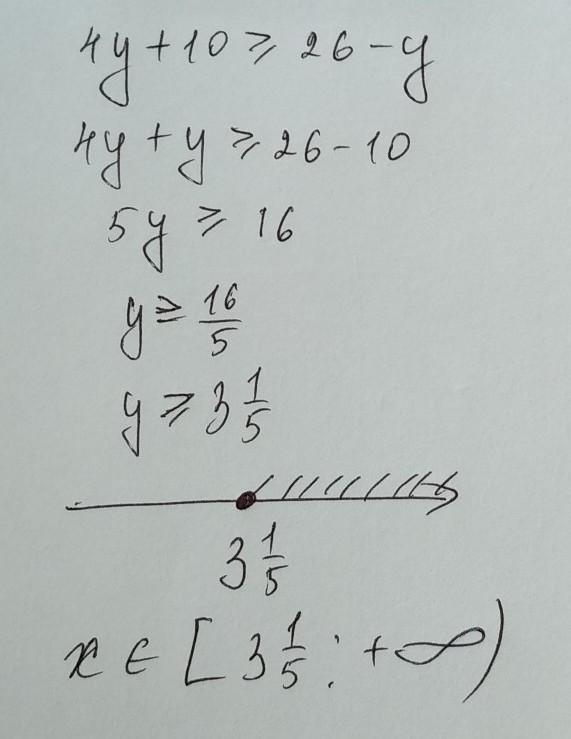 4y + 10 ⩾ 26 - y
4y + y ⩾ 26 - 10
5y ⩾ 16
y ⩾ 16/5
y ⩾ 3 1/5
3 1/5
x ∈ [3 1/5; +∞)